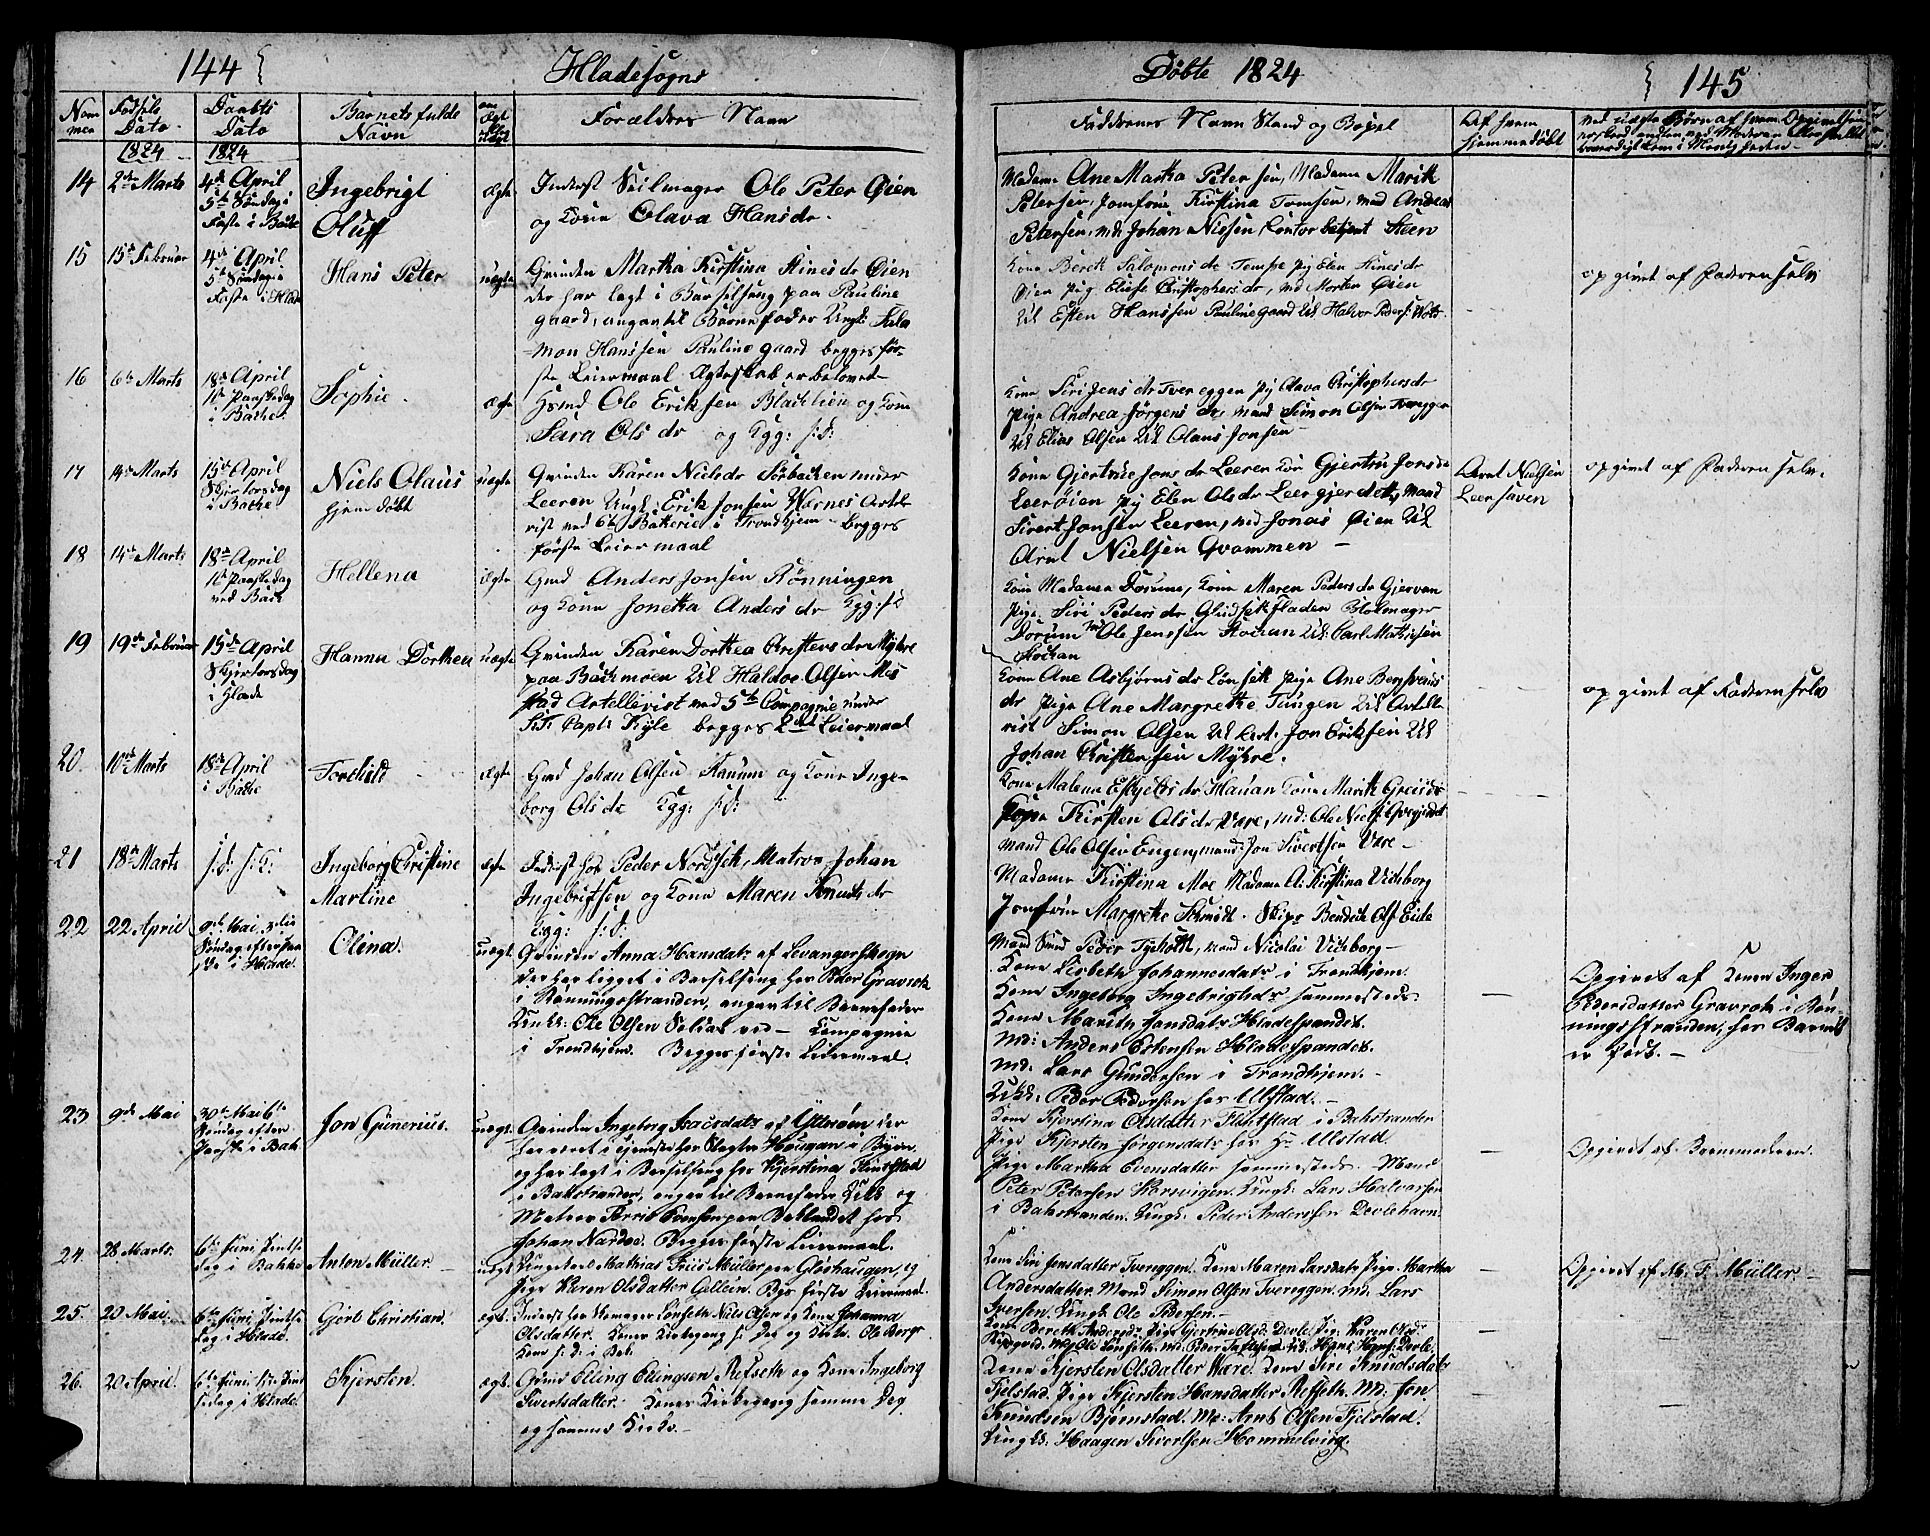 144 Hladesogns
Døbte 1824 145
Nummer Fødsels Dato Daabts Dato Barnets fulde Navn Forældres Navn
Faddernes Navn Stand og Bopel Af hvem hjemmedøbt
1824 1824
14 2de Marts 4de April 5te Søndag i Faste i Bakke Ingebrigt Oluff ægte
Inderst Seilmager Ole Peter Øien
og Kone Olava Hansdr.
Madame Ane Martha Petersen, Madame Marith
Petersen, Jomfrue Kirstina Tomsen, mand Andreas
Petersen, md: Johan Nissen, Contor betjent Steen
15 15de Februar 4de April 5te Søndag i Faste i Hlade Hans Peter uægte
Qvinden Martha Kirstina Stinesdr Øien
der har lagt i Barselseng paa Pauline
gaard, angav til Barnefader Ungk: Salo
mon Hanssen Paulinegaard begges før
ste Leiermaal Ægteskab er belovet
Kone Bereth Salomonsdr Tempe Pig Elen Stinesdr
Øien Pig Eliese Christophersdr, md Morten Øien
UK Esten Hanssen Paulinegaard UK. Halvor Peders:
opgivet af Faderen selv
16 6te Marts 18de April 1te Paaskedag i Bakke Sophie ægte
Hsmd Ole Eriksen Blachlien og Kone
Sara Olsdr og Kgg: s: d:
Kone Siri Jensdr Tvereggen Pig Olava Christophersdr
Pige Andrea Jørgensdr, mand Simon Olsen Tvereggen
UK Elias Olsen UK Olaus Jonsen
17 14de Marts 15de April Skjertorsdag i Bakke Niels Olaus hjemdøbt uægte
Qvinden Karen Nielsdr Sørbacken under
Leeren Ungk: Erik Jonsen Wærnes Artele
rist ved 6te Batterie i Trondhjem begges
første Leiermaal
Kone Gjertrue Jonsdr Leeren Kone Gjertru Jonsdr
Leerøien Pig Elen Olsdr Leergjerdett, Mand
Sivert Jonsen Leeren, md Jonas Øien UK
Arnt Nielsen Qvammen
Arnt Nielsen Leersaven
opgivet af Faderen selv.
18 14de Marts 18de April 1te Paaskedag ved Bakke Hellena ægte
Gmd Anders Jonsen Rønningen
og Kone Jonetha Andersdr Kgg: s: d
Kone Madame Dorum, Kone Maren Pedersdr Gjervan
Pige Siri Pedersdr Gludsethsladen Stolmager
Dorum md Ole Jenssen Stochan UK: Carl Mathisen
Stochan
19 19de Februar 15de April Skjertorsdag i Hlade Hanna Dorthea uægte
Qvinden Karen Dorthea Christensdr Myhre
paa Bachmoen UK Haldoe Olsen Mes
stad Artellerist ved 5te Compagnie under
Capt: Kyle begges 2det Leiermaal
Kone Ane Asbjørnsdr Lønseth Pige Ane Bersvens
dr Pige Ane Margrethe Tungen UK Artelle
rist Simon Olsen UK Art. Jon Eriksen UK
Johan Christensen Myhre.
opgivet af Faderen selv
20. 10de Marts 18de April i Bakke Torchild ægte
Gmd Johan Olsen Stavne og Kone Inge
borg Olsdr Kgg: s: d:
Kone Malena Eskjelsdr Hauan Kone Marith Greisdr
Pige Kirsten Olsdr Vare, md: Ole Niels:
mand Ole Olsen Engen, mand: Jon Sivertsen Vare
21 18de Marts s: d: s: K: Ingeborg Christine Martine ægte
Inderst hos Peder Nordseth, Matros Johan
Ingebritsen og Kone Maren Knudsdr
Kgg: s: d:
Madame Kirstina Moe Madame A: Kirstina Videborg
Jomfrue Margrethe Schmidt. Skips Bendick Ols: Eide
Mand Smed Peder Tyeholdt, mand Nicolai Videborg
22 22 April 9de Mai, 3die Søndag efter Paaske i Hlade. Olina. uægt
Qvinden Anna Hansdatr af Levanger Sogn
der har ligget i Barselseng hos Peder Gravrok
i Rønningsstranden, angav til Barnefader
Ungk: Ole Olsen Soldat ved – Kompagnie
i Trondhjem. Begges første Leiermaal.
Kone Lisbeth Johannesdatr i Trondhjem.
Kone Ingeborg Ingebrigtsdr sammesteds
Kone Marith Jonsdatr Hladespandet.
Md: Anders Estensen Hladespandet.
Md. Lars Gundersen i Trondhjem.
Ungk: Peder Pedersen hos Ulstad.
Opgivet af Konen Inger
Pedersdatter Gravrok i Røn
ningsstranden, hos Barnet
er født.
23 9de Mai 30te Mai 6te Søndag efter Paaske i Bakke Jon Gunerius. uægt
Qvinden Ingeborg Isaisdatr af Ytterøen der
har været i tjeneste hos Slagter Haugan i Byen
og har lagt i Barselseng hos Kjerstina Flinthstad
i Bakstranden, angav til Barnefader Ungk og
Matros Evensen paa Baklandet hos
Johan Nardoe. Begges første Leiermaal.
Kone Kjerstina Olsdatter Flintstad i Bakstranden
Pige Kjersten Jørgensdatr hos Hr Ulstad.
Pige Martha Evensdatter sammesteds. Mand
Peter Petersen Korsvigen. Ungk: Lars Halvorsen
i Bakstranden. Ungk: Peder Anderssen Devlehavn
Opgivet af Barnemoderen.
24. 28 Marts. 6te Juni Pintse dag i Bakke Anton Müller. uægt
Ungekarl Mathias Friis Müller paa Gløshaugen, og
Pige Karen Olsdatter Gellein. Bgs første Leiermaal.
Kone Siri Jonsdatter Tvereggen. Kone Maren Larsdatr Pige Martha
Andersdatter. Mand Simon Olsen Tvereggen. Md. Lars
Iversen. Ungk. Ole Pedersen.
Opgivet af M. F. Müller.
25. 20 Mai. 6te Juni Pintse dag i Hlade. Gjert Christian. ægt.
Inderst hos Lønseth Niels Olsen og Kone Johanna
Olsdatter. Kones Kirkegang s. Dag og Kirke.
Kone Bereth Andersdr Pige Gjertrue Olsd. Devle. Pig: Karen Olsdr
26. 20 April. 6te Juni 1te Pintsedag i Hlade. Kjersten. ægt.
Elling Ellingsen Refseth og Kone Ingeborg
Sivertsdatter. Kones Kirkegang samme Dag
og samme Kirke.
Kone Kjersten Olsdatter Ware. Kone Siri Knudsdatr
Fjelstad. Pige Kjersten Hansdatter Refseth. Md: Jon
Knudsen Bjørnstad. Md: Arnt Olsen Fjelstad.
Ungk: Haagen Sivertsen Hommelvig.